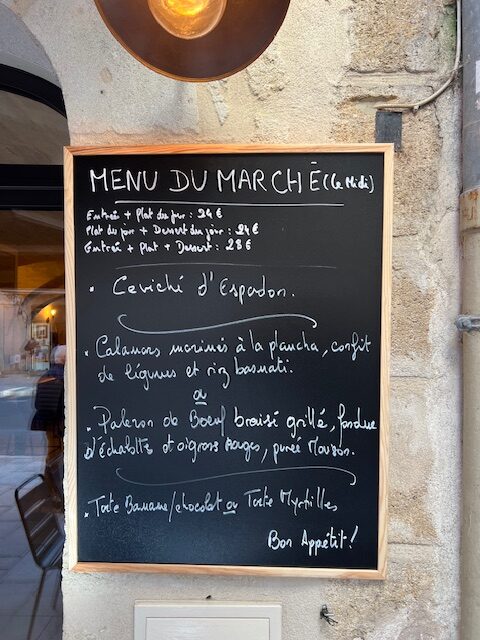 MENU DU MARCHÉ (Le Midi)
Entrée + Plat du jour : 24 €
Plat du jour + Dessert du jour : 24 €
Entrée + Plat + Dessert : 28 €
• Ceviché d'Espadon.
• Calamars marinés à la plancha, confit
de légumes et riz basmati.
ou
• Paleron de Boeuf braisé grillé, fondue
d'échalottes et oignons rouges, purée Maison.
• Tarte Banane/chocolat ou Tarte Myrtilles
Bon Appétit !